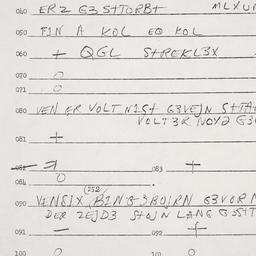 040 ER2 G3STTORBT MLXUM
050 FIN A KOL EQ KOL
060 + QGL STREKL3X
070 O
071 O
080 VEN ER VOLT NIST G3VEJN STTA
VOLT3R NOX2 G3
081 +
082
083 +
084 O
(252
090 VENGIX, BINGSBOJRN G3VORN
DER ZEJD3 SHOJN LANG GSST
091 −
092 +
100 O
101 O